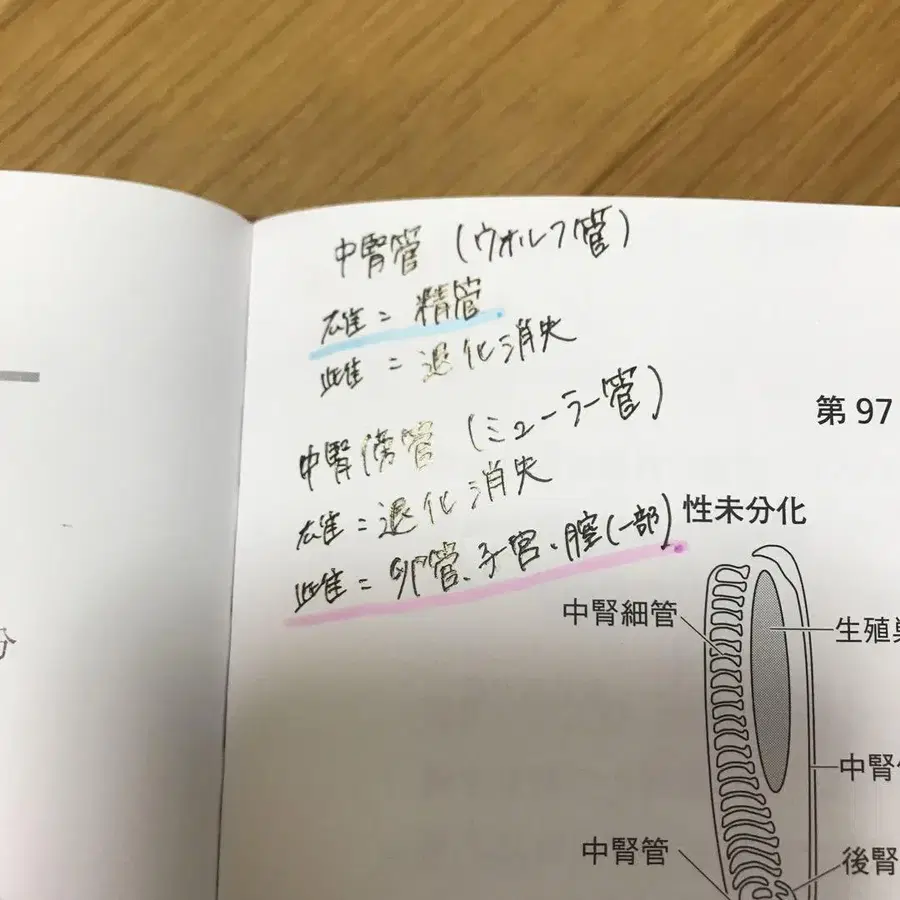 中腎管 (ウオルフ管)
雄 = 精管
雌 = 退化消失
中腎傍管 (ミューラー管)
雄 = 退化消失
雌 = 卵管、子宮、腟(一部)
第 97
性未分化
中腎細管
生殖巣
中腎
中腎管
後腎